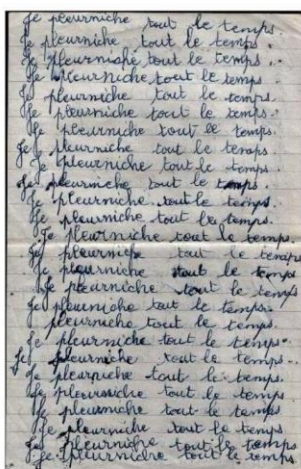 Je pleurniche tout le temps
Je pleurniche tout le temps.
Je pleurniche tout le temps.
Je pleurniche tout le temps
Je pleurniche tout le temps.
Je pleurniche tout le temps.
Je pleurniche tout le temps.
Je pleurniche tout le temps
Je pleurniche tout le temps.
Je pleurniche tout le temps.
Je pleurniche tout le temps.
Je pleurniche tout le temps.
Je pleurniche tout le temps
Je pleurniche tout le temps
Je pleurniche tout le temps
Je pleurniche tout le temps
Je pleurniche tout le temps.
pleurniche tout le temps.
Je pleurniche tout le temps.
Je pleurniche tout le temps.
Je pleurniche tout le temps.
Je pleurniche tout le temps.
Je pleurniche tout le temps
Je pleurniche tout le temps.
Je pleurniche tout le temps
Je pleurniche tout le temps.